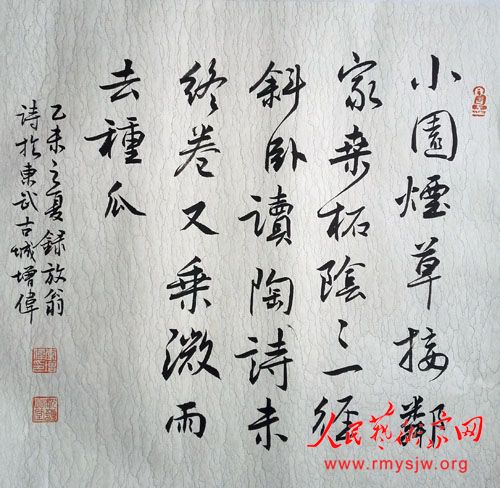 小園煙草接鄰
家桒柘陰々一徑
斜卧讀陶詩未
終卷又乘微雨
去種瓜
乙未之夏録放翁
詩於東武古城增偉
人民艺术家网
www.rmysjw.org